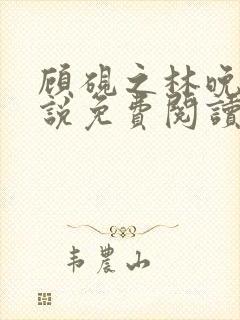 顧硯之林晚
說免費閱讀
韦農山